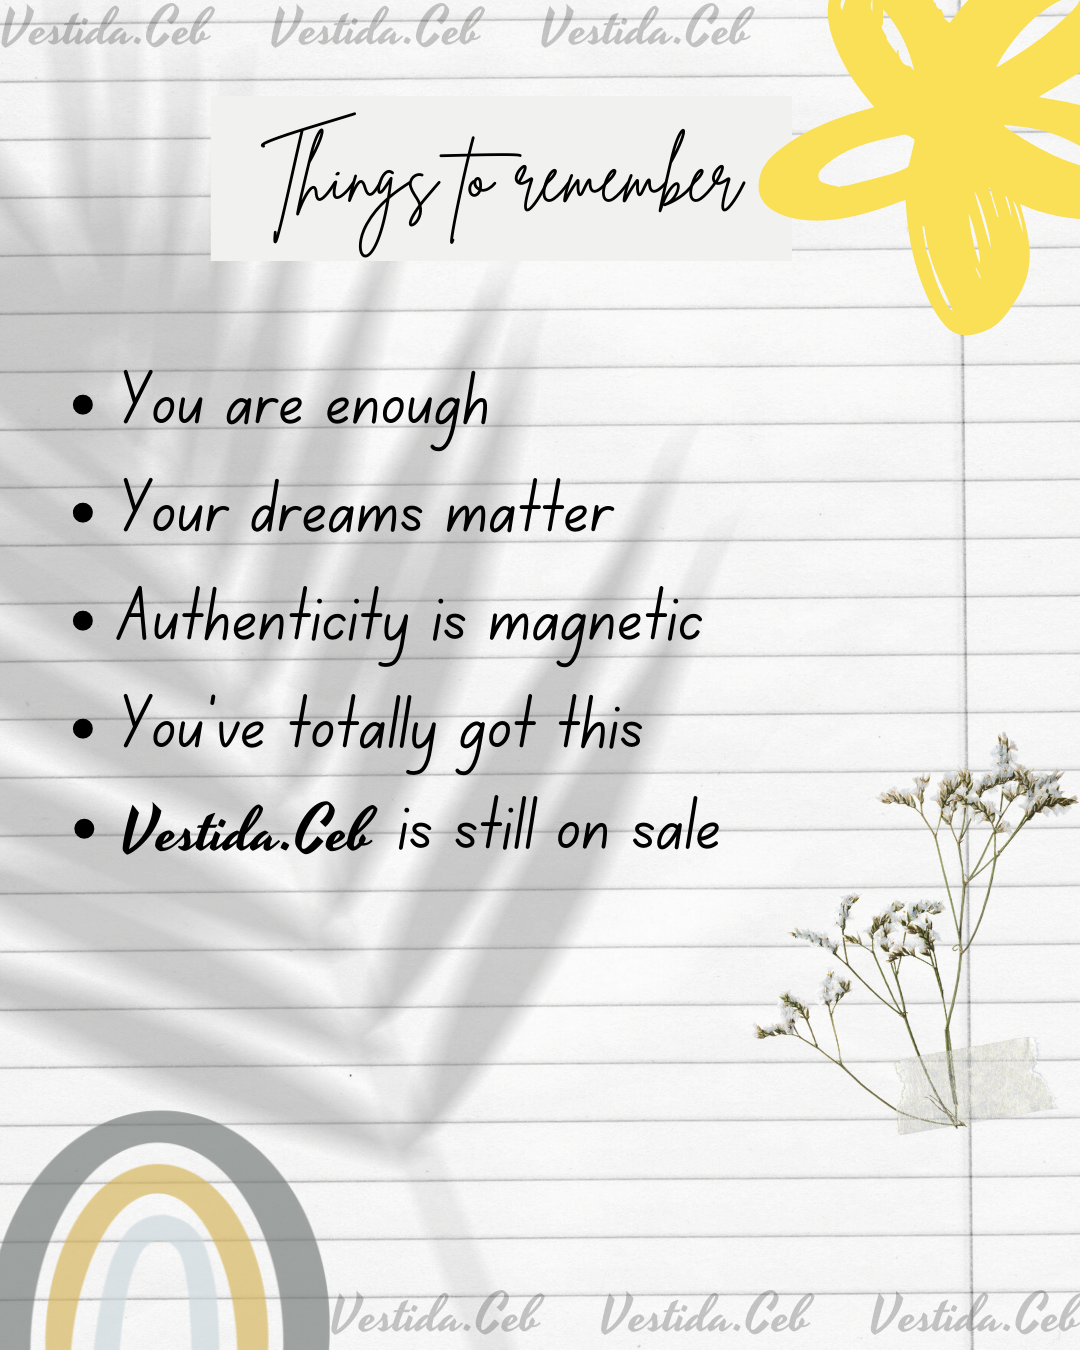 Vestida.Ceb Vestida.Ceb Vestida.Ceb
Things to remember
• You are enough
• Your dreams matter
• Authenticity is magnetic
• You've totally got this
• Vestida.Ceb is still on sale
Vestida.Ceb Vestida.Ceb Vestida.Ceb